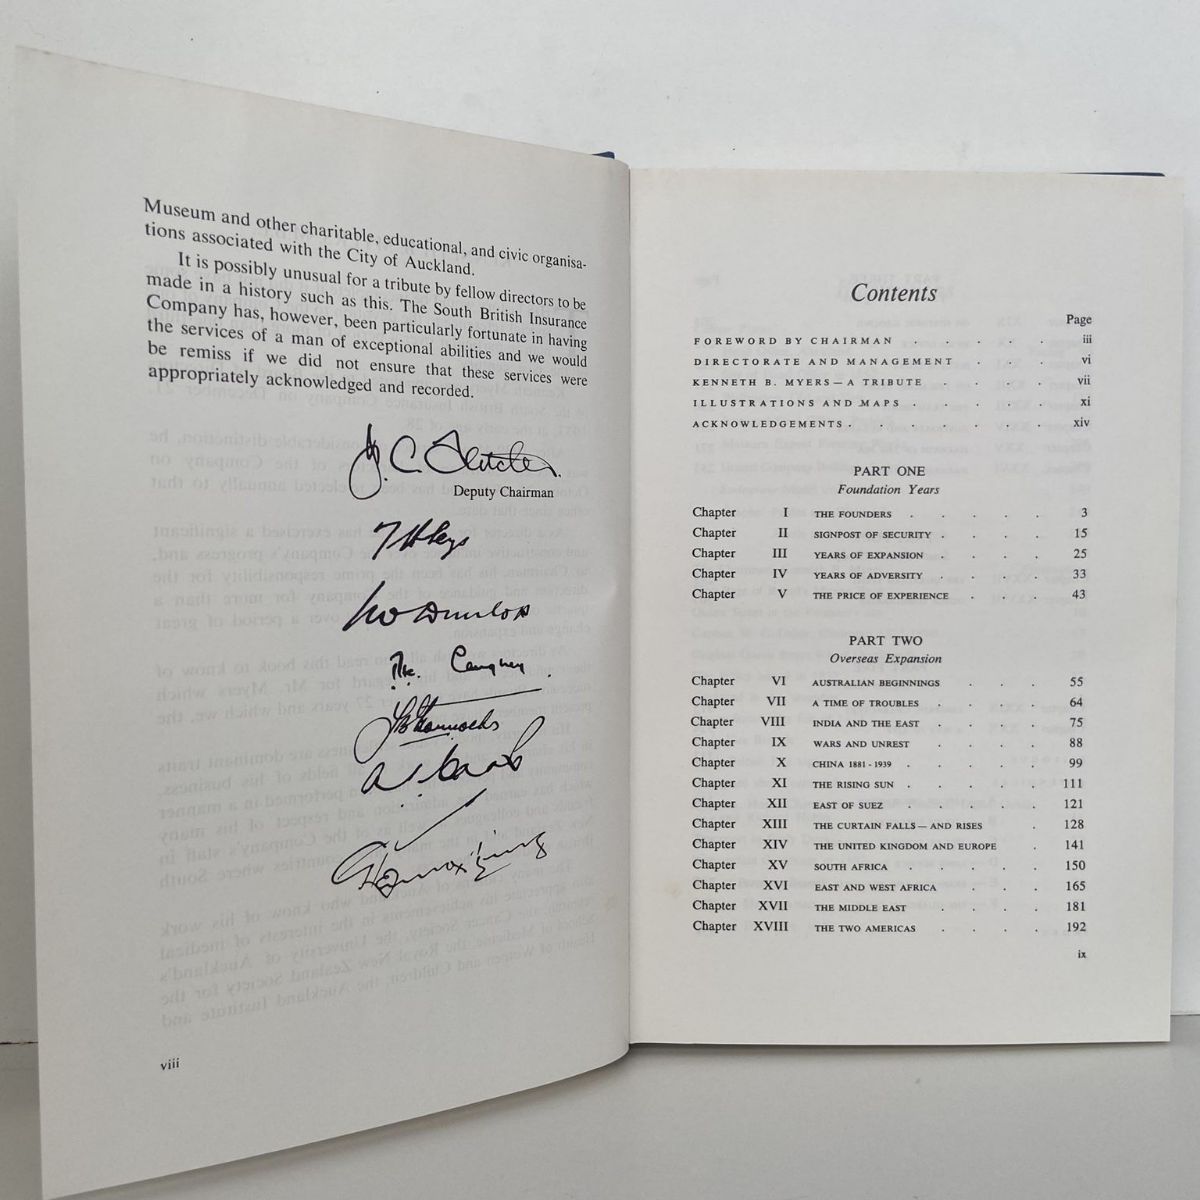 Museum and other charitable, educational, and civic organisa-
tions associated with the City of Auckland.
It is possibly unusual for a tribute by fellow directors to be
made in a history such as this. The South British Insurance
Company has, however, been particularly fortunate in having
the services of a man of exceptional abilities and we would
be remiss if we did not ensure that these services were
appropriately acknowledged and recorded.
J. C. Fletcher.
Deputy Chairman
Dunlop
Caughey
viii
Contents
Page
FOREWORD BY CHAIRMAN . . . . . iii
DIRECTORATE AND MANAGEMENT . . . vi
KENNETH B. MYERS — A TRIBUTE . . . . vii
ILLUSTRATIONS AND MAPS . . . . . xi
ACKNOWLEDGEMENTS . . . . . . xiv
PART ONE
Foundation Years
Chapter I THE FOUNDERS . . . . . 3
Chapter II SIGNPOST OF SECURITY . . . . 15
Chapter III YEARS OF EXPANSION . . . . 25
Chapter IV YEARS OF ADVERSITY . . . . 33
Chapter V THE PRICE OF EXPERIENCE . . . 43
PART TWO
Overseas Expansion
Chapter VI AUSTRALIAN BEGINNINGS . . . 55
Chapter VII A TIME OF TROUBLES . . . . 64
Chapter VIII INDIA AND THE EAST . . . . 75
Chapter IX WARS AND UNREST . . . . 88
Chapter X CHINA 1881 - 1939 . . . . . 99
Chapter XI THE RISING SUN . . . . . 111
Chapter XII EAST OF SUEZ . . . . . 121
Chapter XIII THE CURTAIN FALLS — AND RISES . 128
Chapter XIV THE UNITED KINGDOM AND EUROPE . 141
Chapter XV SOUTH AFRICA . . . . . 150
Chapter XVI EAST AND WEST AFRICA . . . . 165
Chapter XVII THE MIDDLE EAST . . . . 181
Chapter XVIII THE TWO AMERICAS . . . . 192
ix